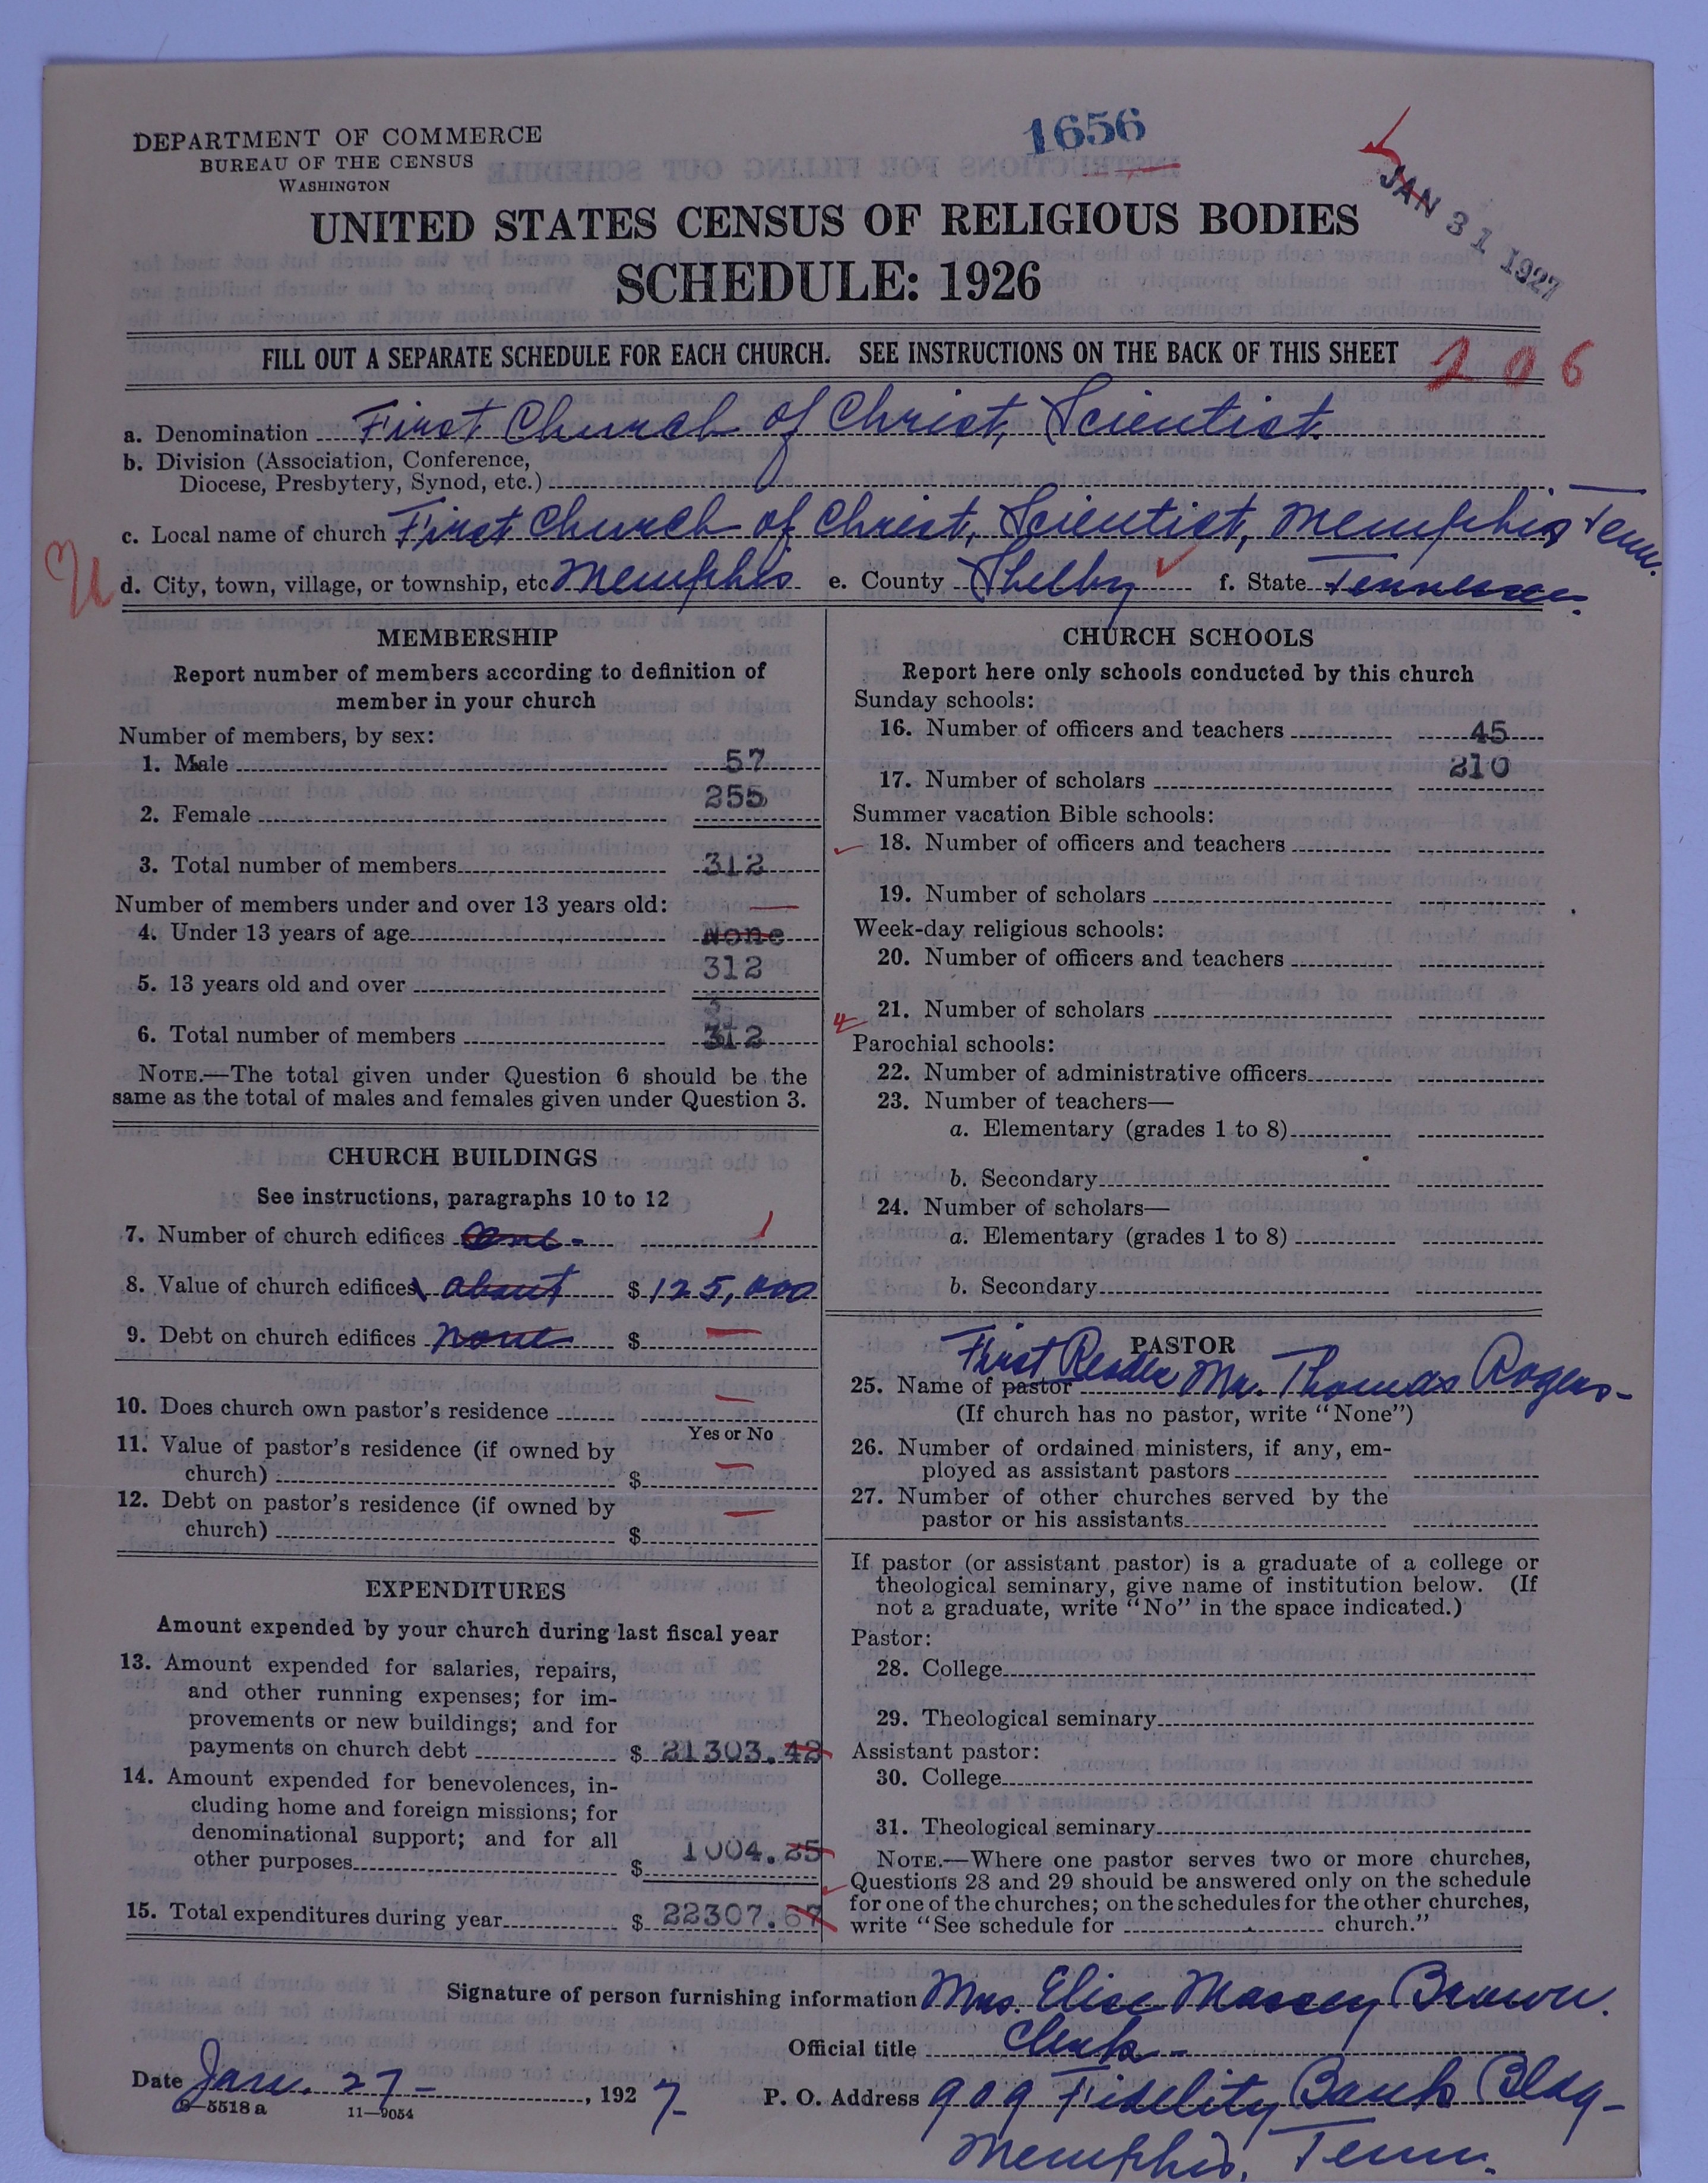 1656
DEPARTMENT OF COMMERCE
BUREAU OF THE CENSUS
WASHINGTON
JAN 31 1927
UNITED STATES CENSUS OF RELIGIOUS BODIES
SCHEDULE: 1926
FILL OUT A SEPARATE SCHEDULE FOR EACH CHURCH. SEE INSTRUCTIONS ON THE BACK OF THIS SHEET
206
a. Denomination First Church of Christ, Scientist.
b. Division (Association, Conference,
Diocese, Presbytery, Synod, etc.)
c. Local name of church First Church of Christ, Scientist, Memphis Tenn.
d. City, town, village, or township, etc. Memphis e. County Shelby f. State Tennessee.
MEMBERSHIP
Report number of members according to definition of
member in your church
Number of members, by sex:
1. Male 57
2. Female 255
3. Total number of members 312
Number of members under and over 13 years old:
4. Under 13 years of age None
5. 13 years old and over 312
6. Total number of members 312
NOTE.—The total given under Question 6 should be the
same as the total of males and females given under Question 3.
CHURCH BUILDINGS
See instructions, paragraphs 10 to 12
7. Number of church edifices One - 1
8. Value of church edifices about $ 125,000
9. Debt on church edifices none $ —
10. Does church own pastor's residence —
Yes or No
11. Value of pastor's residence (if owned by
church) $ —
12. Debt on pastor's residence (if owned by
church) $ —
EXPENDITURES
Amount expended by your church during last fiscal year
13. Amount expended for salaries, repairs,
and other running expenses; for im-
provements or new buildings; and for
payments on church debt $ 21303.42
14. Amount expended for benevolences, in-
cluding home and foreign missions; for
denominational support; and for all
other purposes $ 1004.25
15. Total expenditures during year $ 22307.67
CHURCH SCHOOLS
Report here only schools conducted by this church
Sunday schools:
16. Number of officers and teachers 45
17. Number of scholars 210
Summer vacation Bible schools:
18. Number of officers and teachers
19. Number of scholars
Week-day religious schools:
20. Number of officers and teachers
21. Number of scholars
Parochial schools:
22. Number of administrative officers
23. Number of teachers—
a. Elementary (grades 1 to 8)
b. Secondary
24. Number of scholars—
a. Elementary (grades 1 to 8)
b. Secondary
PASTOR
25. Name of pastor First Reader Mr. Thomas Rogers-
(If church has no pastor, write "None")
26. Number of ordained ministers, if any, em-
ployed as assistant pastors
27. Number of other churches served by the
pastor or his assistants
If pastor (or assistant pastor) is a graduate of a college or
theological seminary, give name of institution below. (If
not a graduate, write "No" in the space indicated.)
Pastor:
28. College
29. Theological seminary
Assistant pastor:
30. College
31. Theological seminary
NOTE.—Where one pastor serves two or more churches,
Questions 28 and 29 should be answered only on the schedule
for one of the churches; on the schedules for the other churches,
write "See schedule for church."
Signature of person furnishing information Mrs. Elise Massey Brown.
Official title Clerk -
Date Jan. 27 - , 1927 P. O. Address 909 Fidelity Bank Bldg-
8—5518a 11—9054
Memphis, Tenn.